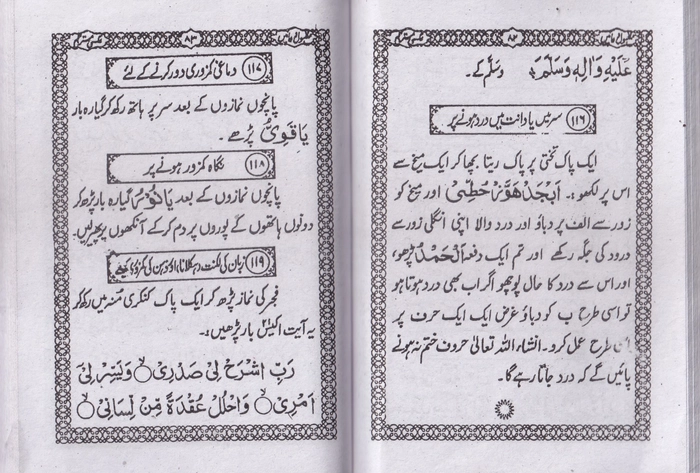 ۸۲
عَلَیْهِ وَاٰلِهٖ وَسَلَّمَ وسَلَّم کے۔
۱۱۶ سر میں یا دانت میں درد ہونے پر
ایک پاک تختی پر پاک ریتا بچھا کر ایک میخ سے
اس پر لکھو:۔ اَبْجَدْ هَوَّزْ حُطِّیْ اور میخ کو
زور سے الف پر دباؤ اور درد والا اپنی انگلی زور سے
درد کی جگہ رکھے اور تم ایک دفعہ اَلْحَمْدُ پڑھو
اور اس سے درد کا حال پوچھو اگر اب بھی درد ہوتا ہو
تو اسی طرح ب کو دباؤ غرض ایک ایک حرف پر
اسی طرح عمل کرو۔ انشاء اللہ تعالیٰ حروف ختم نہ ہونے
پائیں گے کہ درد جاتا رہے گا۔
۸۳
۱۱۷ دماغی کمزوری دور کرنے کے لئے
پانچوں نمازوں کے بعد سر پر ہاتھ رکھ کر گیارہ بار
یَا قَوِیُّ پڑھے۔
۱۱۸ نگاہ کمزور ہونے پر
پانچوں نمازوں کے بعد یَا نُوْرُ گیارہ بار پڑھ کر
دونوں ہاتھوں کے پوروں پر دم کر کے آنکھوں پر پھیر لیں۔
۱۱۹ زبان کی لکنت، ہکلانا، اور ذہن کی کمزوری کیلئے
فجر کی نماز پڑھ کر ایک پاک کنکری مُنہ میں رکھ کر
یہ آیت اکیس بار پڑھیں:۔
رَبِّ اشْرَحْ لِیْ صَدْرِیْ وَیَسِّرْ لِیْ
اَمْرِیْ وَاحْلُلْ عُقْدَةً مِّنْ لِّسَانِیْ